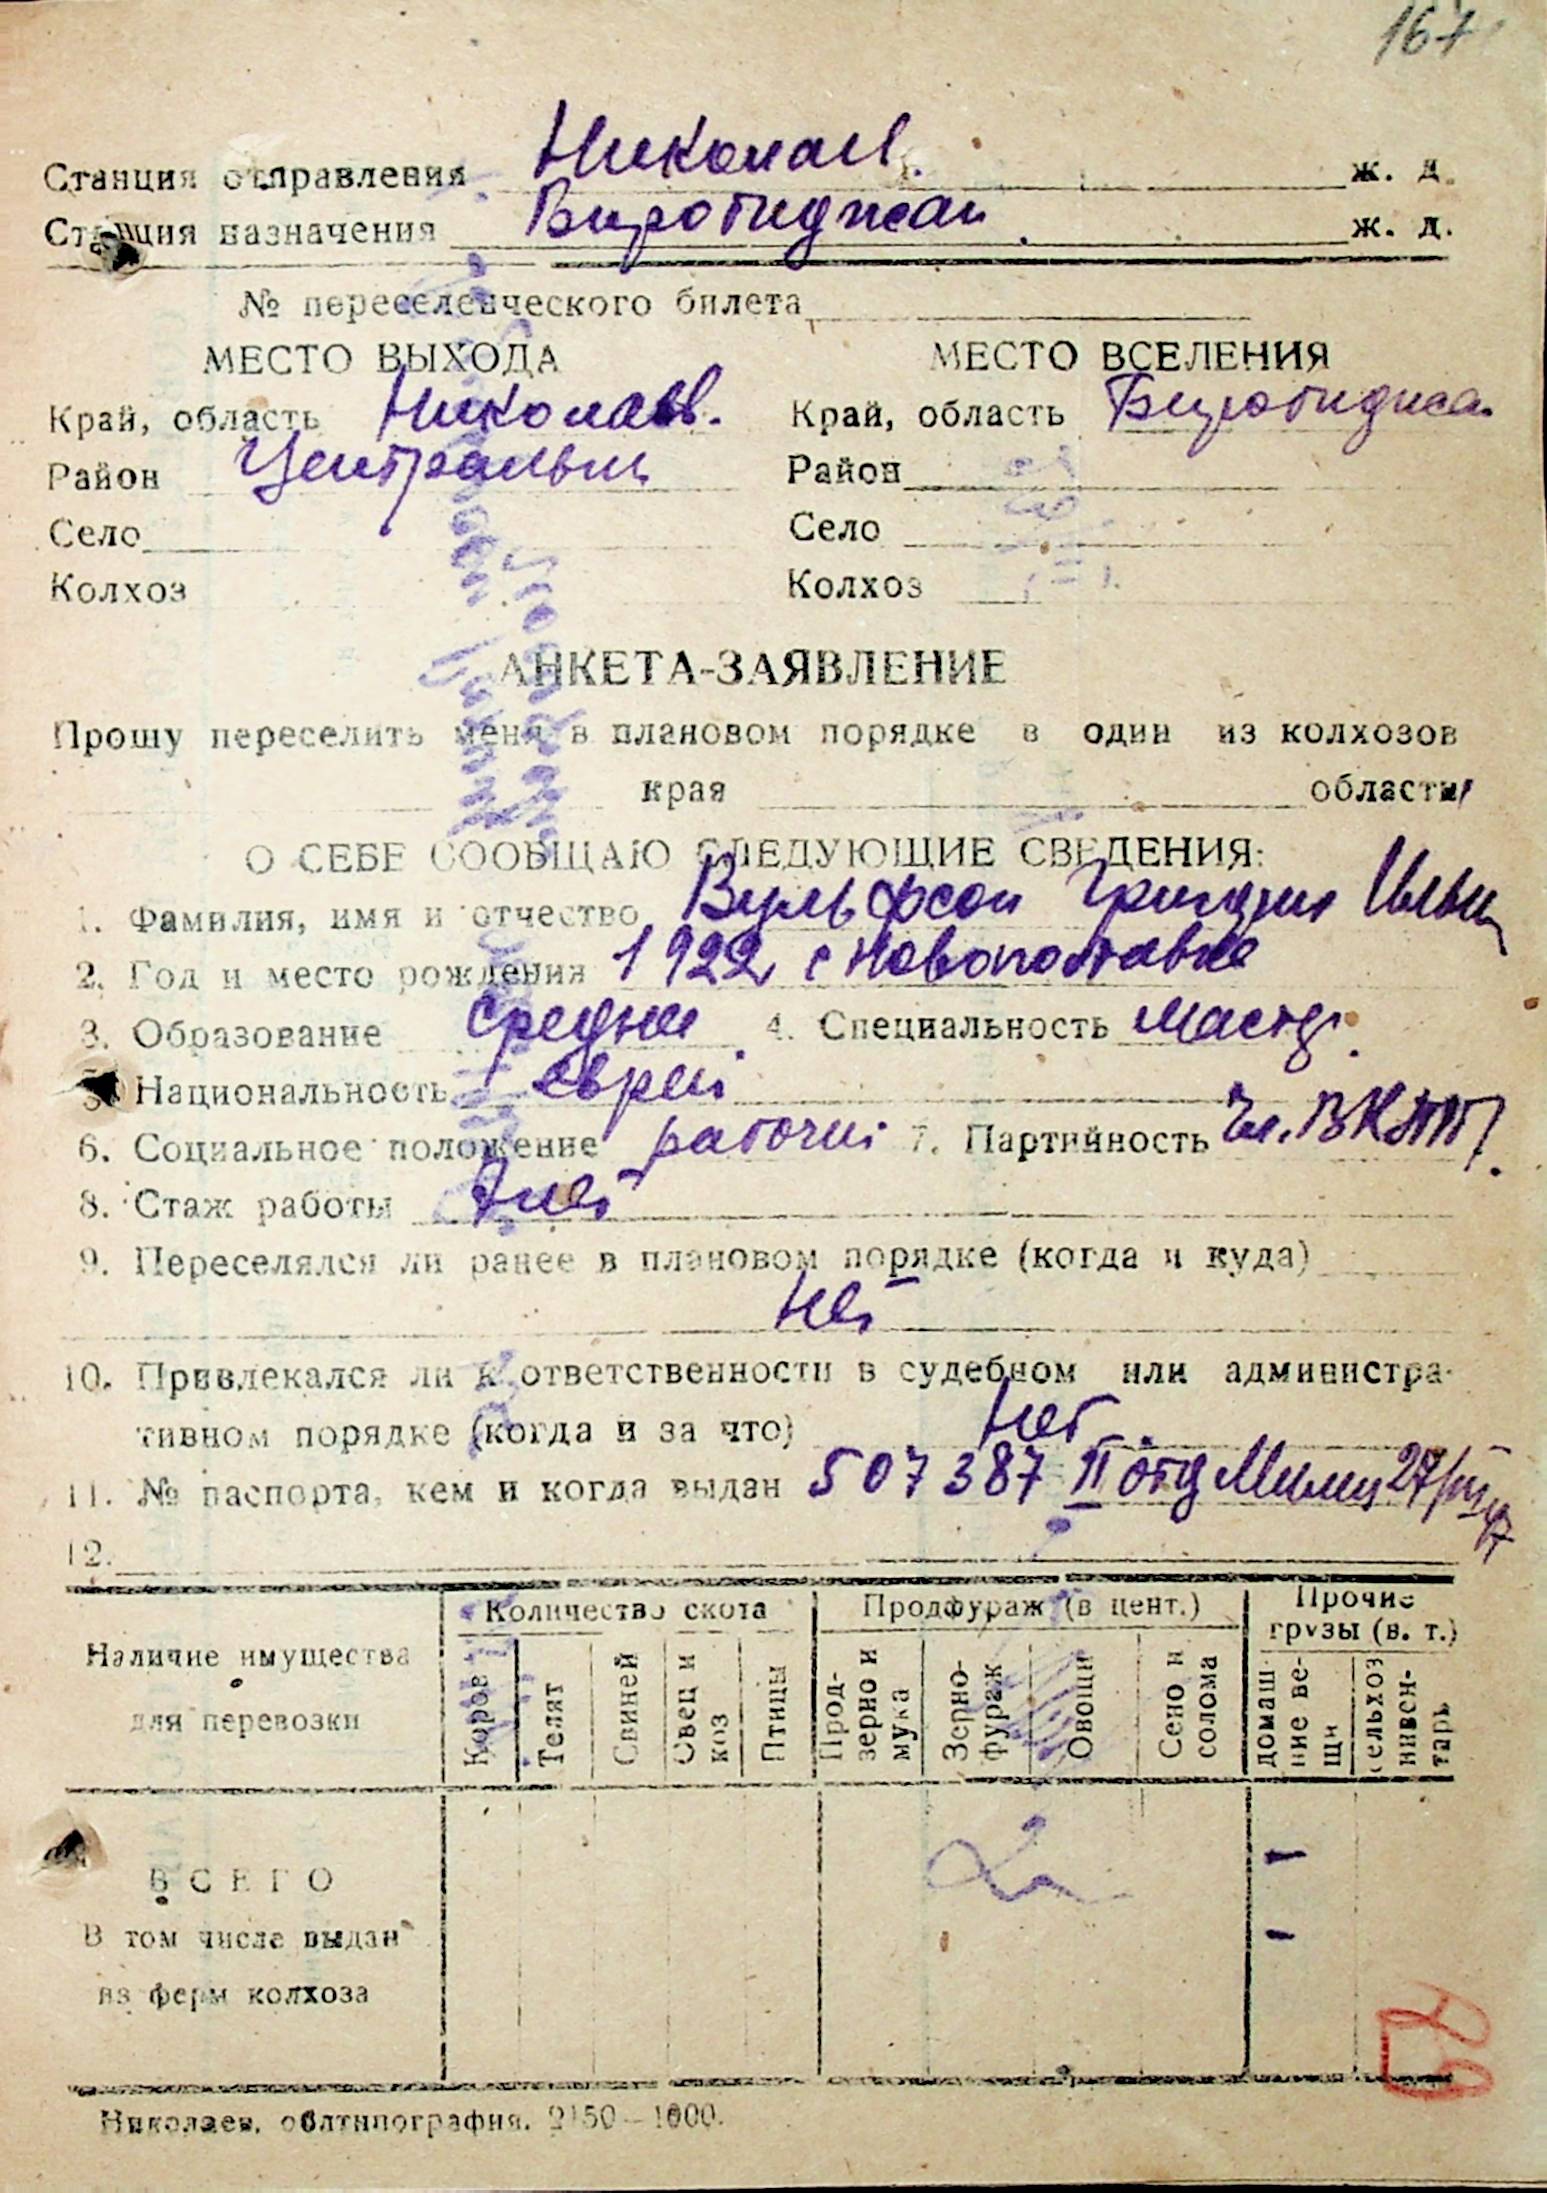 167
Станция отправления Николаев. ж. д.
Станция назначения Биробиджан ж. д.
№ переселенческого билета
МЕСТО ВЫХОДА МЕСТО ВСЕЛЕНИЯ
Край, область Николаев. Край, область Биробиджа.
Район Центральн Район
Село Село
Колхоз Колхоз
АНКЕТА-ЗАЯВЛЕНИЕ
Прошу переселить меня в плановом порядке в один из колхозов
края области
О СЕБЕ СООБЩАЮ СЛЕДУЮЩИЕ СВЕДЕНИЯ:
1. Фамилия, имя и отчество Вульфсон Григорий Ильич
2. Год и место рождения 1922 с Новополтавка
3. Образование средне 4. Специальность мастер.
5. Национальность еврей
6. Социальное положение рабочий 7. Партийность Чл. ВКП
8. Стаж работы лет
9. Переселялся ли ранее в плановом порядке (когда и куда)
Нет
10. Привлекался ли к ответственности в судебном или администра-
тивном порядке (когда и за что) Нет
11. № паспорта, кем и когда выдан 507387 II отд Милиц 27/
12.
Наличие имущества для перевозки
Количество скота Продфураж (в цент.) Прочие грузы (в. т.)
Коров Телят Свиней Овец и коз Птицы Прод-зерно и мука Зерно-фураж Овощи Сено и солома домашние вещи сельхоз инвентарь
ВСЕГО - 
В том числе выдан -
из ферм колхоза
Николаев, облтипография. 2150—1000.